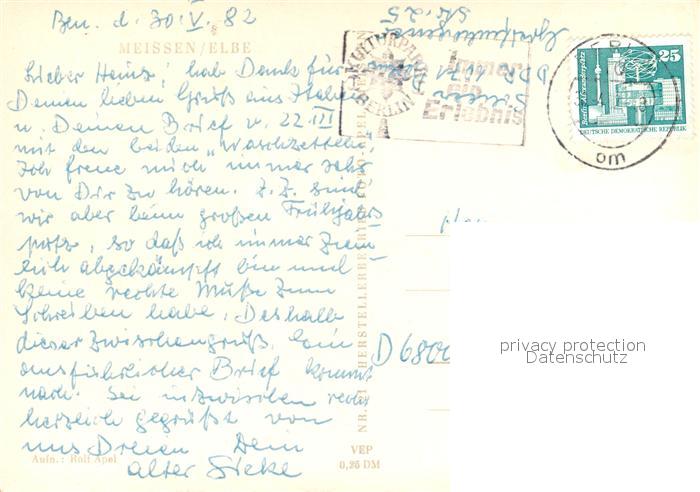 Bln. d. 30. V. 82
MEISSEN/ELBE
Lieber Heinz, hab Dank für
Deinen lieben Gruß aus Italien
u. Deinen Brief v. 22. III
mit den beiden „Waschzetteln“.
Ich freue mich immer sehr
von Dir zu hören. Z. Z. sind
wir aber beim großen Frühjahrs
putz, so daß ich immer ziem
lich abgekämpft bin und
keine rechte Muße zum
Schreiben habe. Deshalb
dieser Zwischengruß. Ein
ausführlicher Brief kommt
nach. Sei inzwischen recht
herzlich gegrüßt von
uns Dreien Dein
alter
Aufn.: Rolf Apel
VEP
0,25 DM
KULTURPARK
BERLIN
Immer
ein
Erlebnis
DDR 1071
Str. 25
25
Berlin, Alexanderplatz
DEUTSCHE DEMOKRATISCHE REPUBLIK
om
D 6800
privacy protection
Datenschutz